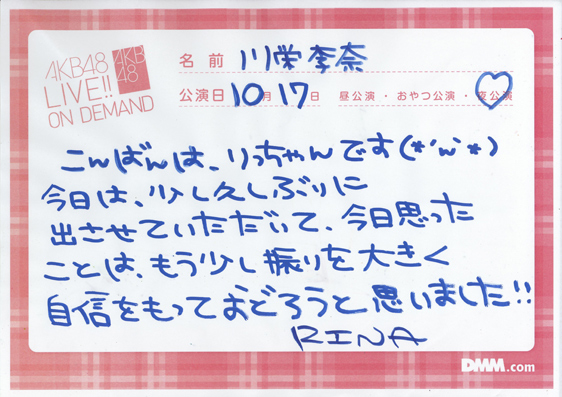 AKB48
LIVE!!
ON DEMAND
AKB
48
名前 川栄李奈
公演日 10月17日 昼公演・おやつ公演・夜公演
こんばんは、りっちゃんです(*'ω'*)
今日は、少し久しぶりに
出させていただいて、今日思った
ことは、もう少し振りを大きく
自信をもっておどろうと思いました!!
RINA
DMM.com